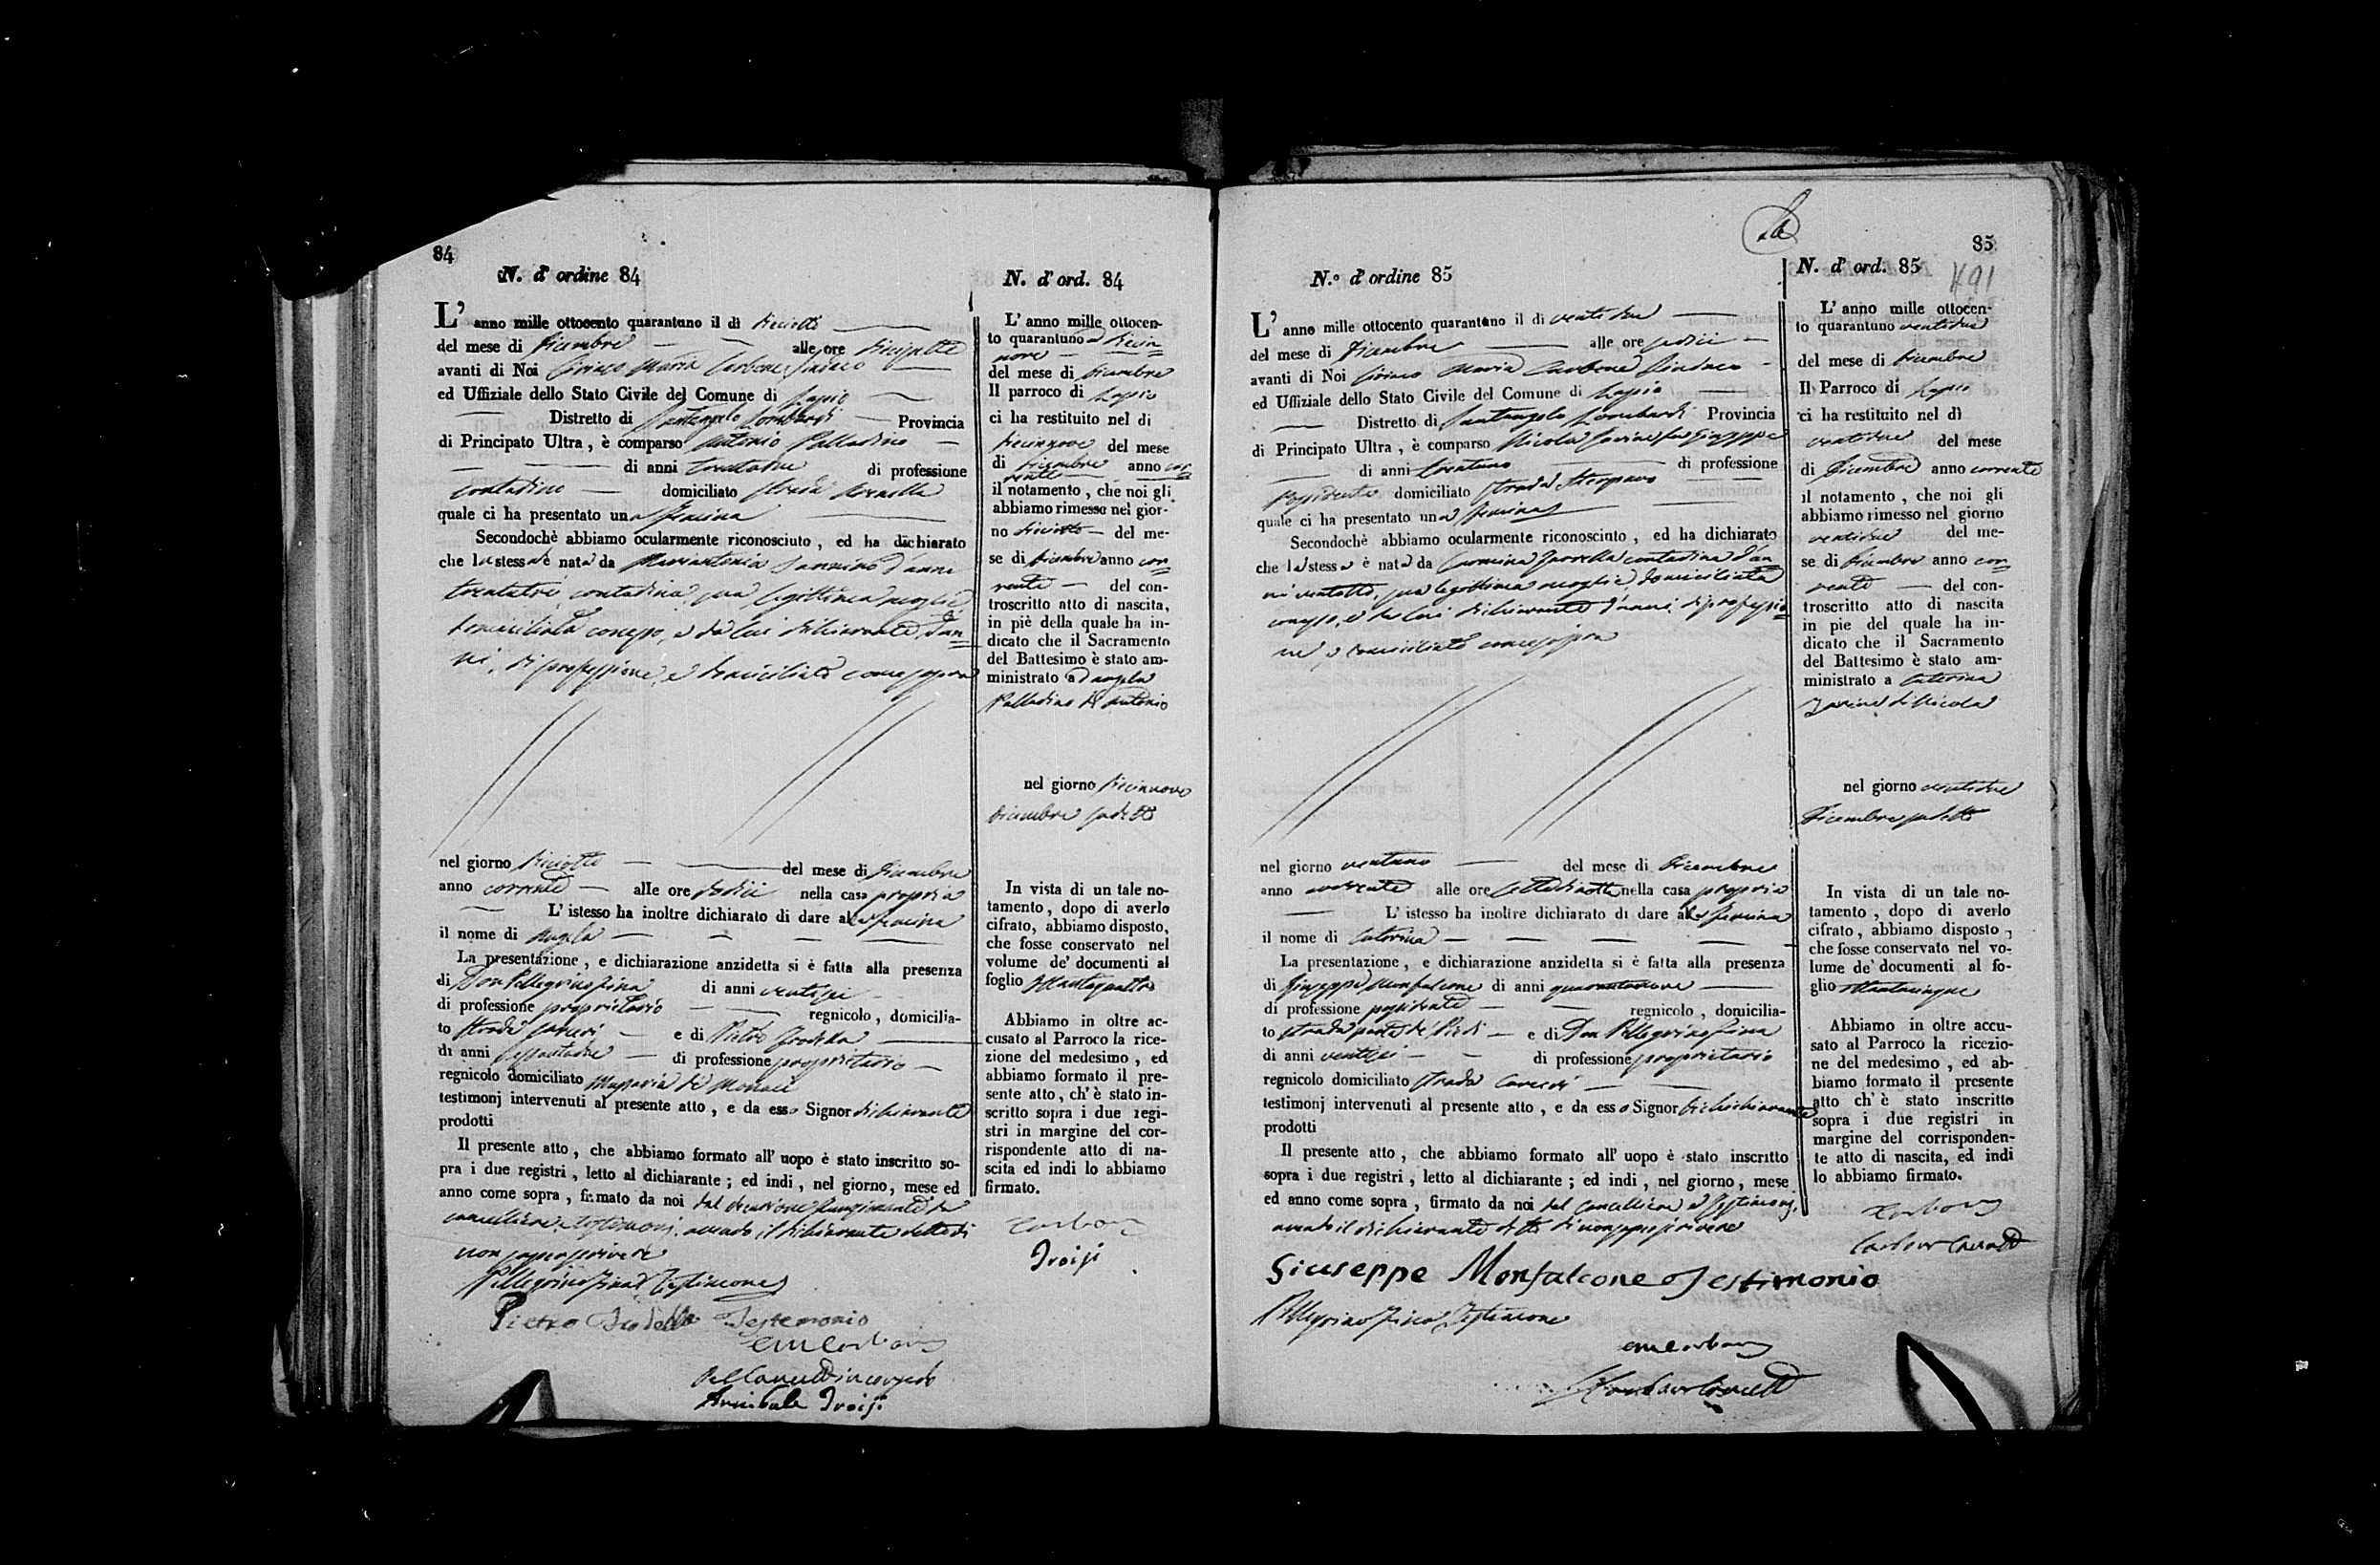 84
N. d' ordine 84
L' anno mille ottocento quarantuno il dì diciotto
del mese di Dicembre alle ore
avanti di Noi Ciriaco Maria Carbone Sindaco
ed Uffiziale dello Stato Civile del Comune di Lapio
Distretto di Santangelo Lombardi Provincia
di Principato Ultra, è comparso Antonio Palladino
di anni trentadue di professione
contadino domiciliato Strada
quale ci ha presentato una femina
Secondochè abbiamo ocularmente riconosciuto, ed ha dichiarato
che la stessa è nata da Mariantonia d'anni
trentatre contadina sua legittima moglie
domiciliata conesso, e da lui dichiarante, d'an=
ni, di professione, e domiciliato come sopra
nel giorno diciotto del mese di Dicembre
anno corrente alle ore dodici nella casa propria
L' istesso ha inoltre dichiarato di dare alla femina
il nome di Angela
La presentazione, e dichiarazione anzidetta si è fatta alla presenza
di Don Pellegrino di anni ventisei
di professione proprietario regnicolo, domicilia-
to strada e di Pietro
di anni di professione proprietario
regnicolo domiciliato
testimonj intervenuti al presente atto, e da esso Signor dichiarante
prodotti
Il presente atto, che abbiamo formato all' uopo è stato inscritto so-
pra i due registri, letto al dichiarante; ed indi, nel giorno, mese ed
anno come sopra, firmato da noi dal decurione funzionante da
cancelliere e testimonj, avendo il dichiarante detto di
non saper scrivere
Pellegrino Testimone
Pietro Testemonio
CM Carbone
Pel Cancell.e in congedo
Annibale Troisi
N. d' ord. 84
L' anno mille ottocen-
to quarantuno a Dician=
nove
del mese di Dicembre
Il parroco di Lapio
ci ha restituito nel di
diciannove del mese
di Dicembre anno cor=
rente
il notamento, che noi gli
abbiamo rimesso nel gior-
no diciotto del me-
se di Dicembre anno cor=
rente del con-
troscritto atto di nascita,
in piè della quale ha in-
dicato che il Sacramento
del Battesimo è stato am-
ministrato ad Angela
Palladino di Antonio
nel giorno diciannove
Dicembre sudetto
In vista di un tale no-
tamento, dopo di averlo
cifrato, abbiamo disposto,
che fosse conservato nel
volume de' documenti al
foglio ottantaquattro
Abbiamo in oltre ac-
cusato al Parroco la rice-
zione del medesimo, ed
abbiamo formato il pre-
sente atto, ch' è stato in-
scritto sopra i due regi-
stri in margine del cor-
rispondente atto di na-
scita ed indi lo abbiamo
firmato.
Carbone
Troisi
85
491
N.o d' ordine 85
L' anno mille ottocento quarantuno il di ventidue
del mese di Dicembre alle ore sedici
avanti di Noi Ciriaco Maria Carbone Sindaco
ed Uffiziale dello Stato Civile del Comune di Lapio
Distretto di Santangelo Lombardi Provincia
di Principato Ultra, è comparso Nicola fu Giuseppe
di anni trentuno di professione
possidente domiciliato Strada
quale ci ha presentato una femina
Secondochè abbiamo ocularmente riconosciuto, ed ha dichiarato
che la stessa è nata da Carmina contadina d'an=
ni ventotto, sua legittima moglie, domiciliata
conesso, e da lui dichiarante d'anni, di professio=
ne, e domiciliato come sopra
nel giorno ventuno del mese di Dicembre
anno corrente alle ore nella casa propria
L' istesso ha inoltre dichiarato di dare alla femina
il nome di Caterina
La presentazione, e dichiarazione anzidetta si è fatta alla presenza
di Giuseppe Monfalcone di anni quarantanove
di professione possidente regnicolo, domicilia-
to strada e di Don Pellegrino
di anni ventisei di professione proprietario
regnicolo domiciliato strada
testimonj intervenuti al presente atto, e da esso Signor dichiarante
prodotti
Il presente atto, che abbiamo formato all' uopo è stato inscritto
sopra i due registri, letto al dichiarante; ed indi, nel giorno, mese
ed anno come sopra, firmato da noi dal Cancelliere e Testimonj,
avendo il dichiarante detto di non saper scrivere
Giuseppe Monfalcone Testimonio
Pellegrino Testimone
CM Carbone
N. d' ord. 85
L' anno mille ottocen-
to quarantuno ventidue
del mese di Dicembre
Il Parroco di Lapio
ci ha restituito nel dì
ventidue del mese
di Dicembre anno corrente
il notamento, che noi gli
abbiamo rimesso nel giorno
ventidue del me-
se di Dicembre anno cor=
rente del con-
troscritto atto di nascita
in pie del quale ha in-
dicato che il Sacramento
del Battesimo è stato am-
ministrato a Caterina
di Nicola
nel giorno ventidue
Dicembre sudetto
In vista di un tale no-
tamento, dopo di averlo
cifrato, abbiamo disposto,
che fosse conservato nel vo-
lume de' documenti al fo-
glio ottantacinque
Abbiamo in oltre accu-
sato al Parroco la ricezio-
ne del medesimo, ed ab-
biamo formato il presente
atto ch' è stato inscritto
sopra i due registri in
margine del corrisponden-
te atto di nascita, ed indi
lo abbiamo firmato.
Carbone